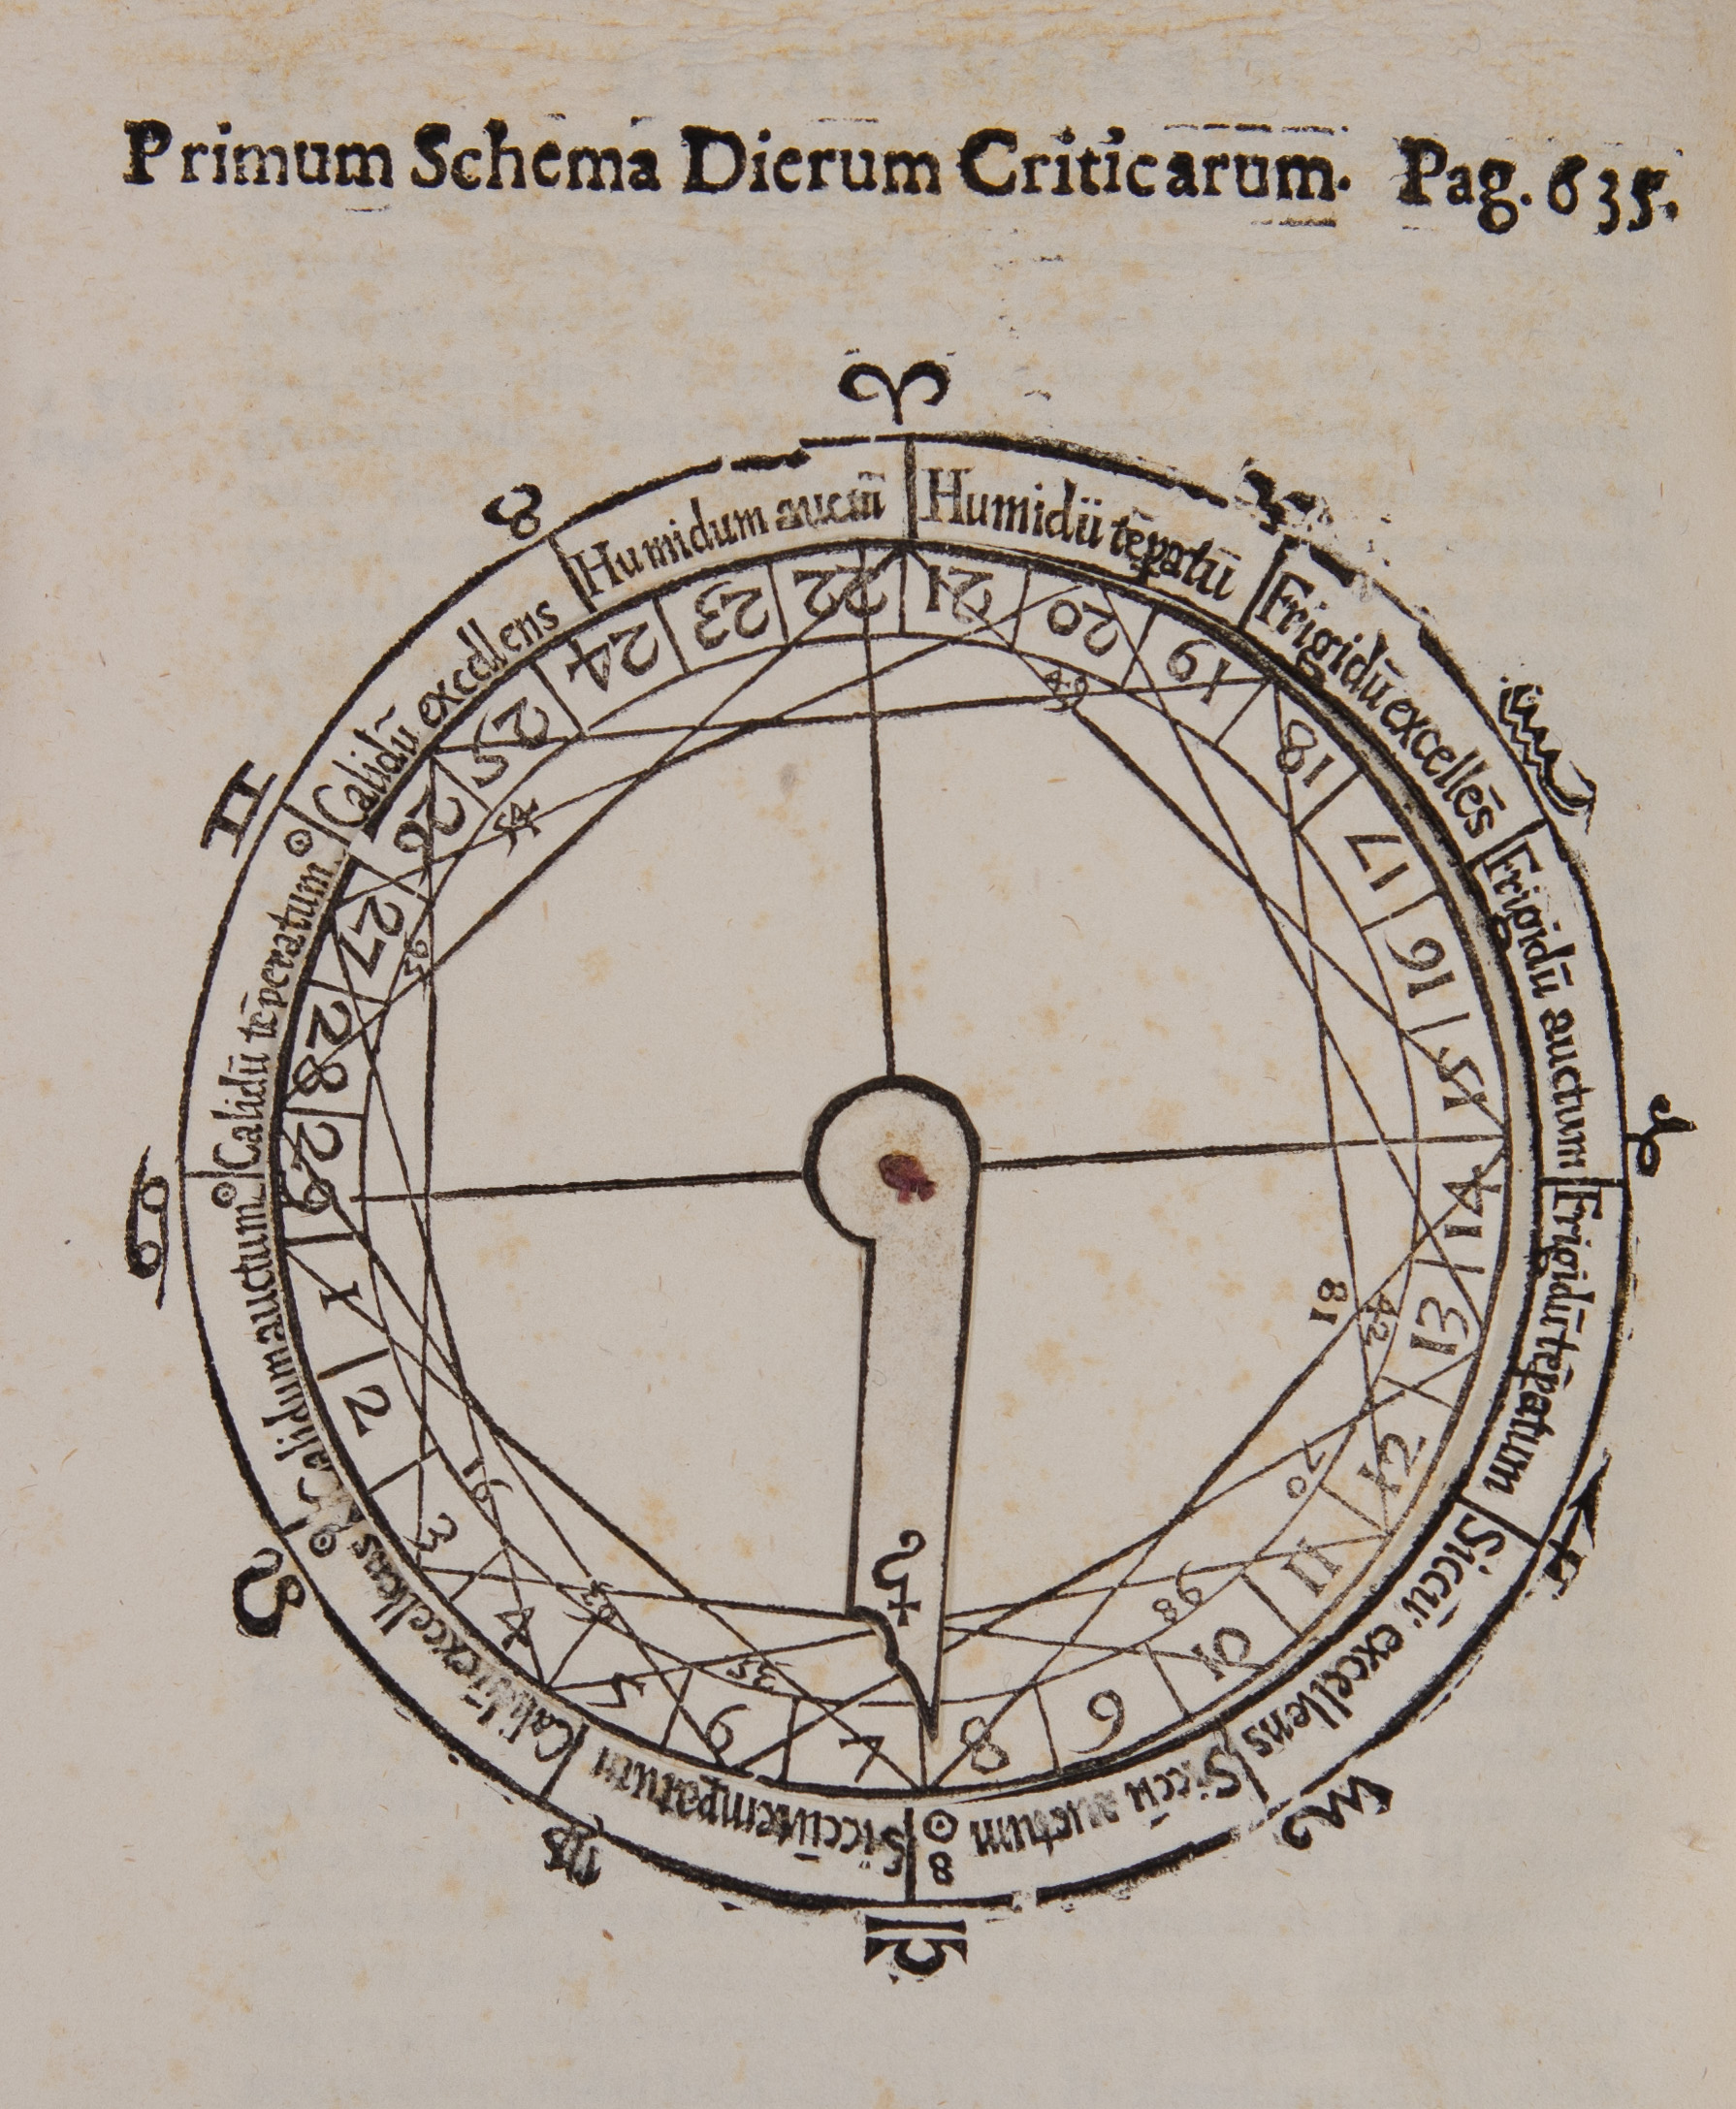 Primum Schema Dierum Criticarum. Pag. 635.
♈
Humidū tēꝑatū
Frigidū excellēs
♑
Frigidū auctum
Frigidū tēꝑatum
♐
Siccū excellens
♏
Siccū auctum
☉
8
♎
Siccū tempatum
♍
Calidū excellens
☉
♌
Calidum auctum
☉
♋
Calidū tēperatum
☉
♊
Calidū excellens
♉
Humidum auctū
1
2
3
4
5
6
7
8
9
10
11
12
13
14
15
16
17
18
19
20
21
22
23
24
25
26
27
28
29
49
81
42
70
98
35
63
91